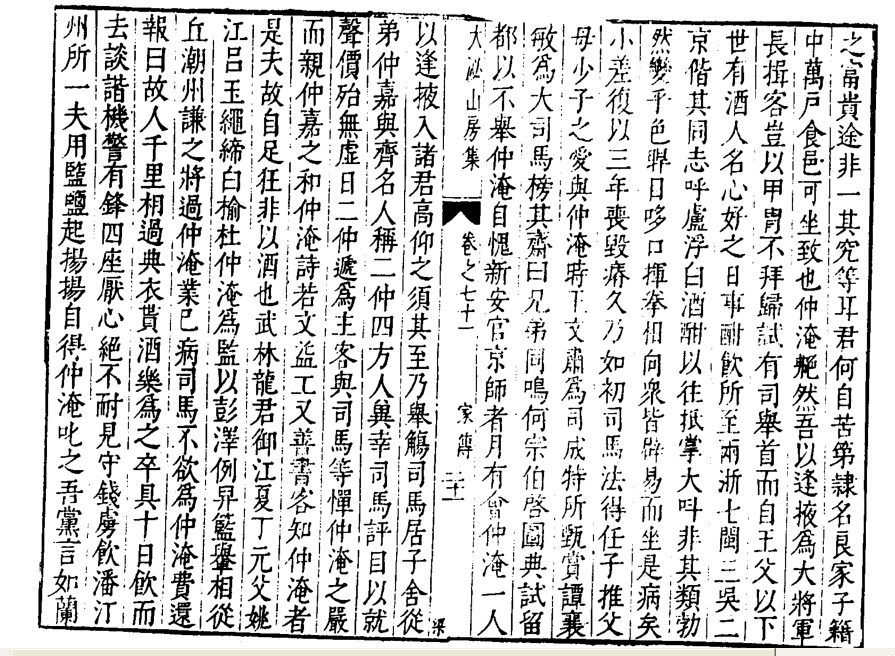 之富貴途非一其究等耳君何自苦第隸名良家子籍
中萬戶食邑可坐致也仲淹艴然吾以逢掖為大將軍
長揖客豈以甲胄不拜歸試有司舉首而自王父以下
世有酒人名心好之日事酣飲所至兩浙七閩三吳二
京偕其同志呼盧浮白酒酣以往抵掌大叫非其類勃
然變乎色睅目哆口揮拳相向衆皆辟易而坐是病矣
小差復以三年喪毀瘠久乃如初司馬法得任子推父
母少子之愛與仲淹時王文肅為司成特所甄賞譚襄
敏為大司馬榜其齋曰兄弟同鳴何宗伯啓圖典試留
都以不舉仲淹自愧新安官京師者月有會仲淹一人
大泌山房集 卷之七十一 家傳 二十一
以逢掖入諸君高仰之須其至乃舉觴司馬居子舍從
弟仲嘉與齊名人稱二仲四方人兾幸司馬評目以就
聲價殆無虛日二仲遞為主客與司馬等憚仲淹之嚴
而親仲嘉之和仲淹詩若文益工又善書客知仲淹者
是夫故自足狂非以酒也武林龍君御江夏丁元父姚
江呂玉繩締白榆社仲淹為監以彭澤例舁籃轝相從
丘潮州謙之將過仲淹業已病司馬不欲為仲淹費還
報曰故人千里相過典衣貰酒樂為之卒具十日飲而
去談諧機警有鋒四座厭心絕不耐見守錢虜飲潘汀
州所一夫用監鹽起揚揚自得仲淹叱之吾黨言如蘭